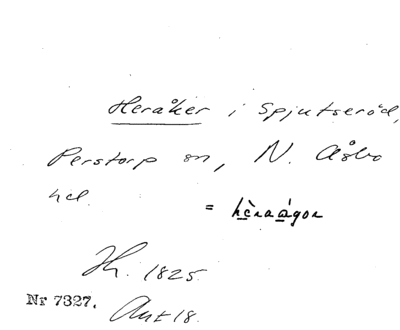 Heråker i Spjutseröd,
Perstorp sn, N. Åsbo
hd.
= hèraágor
Jh. 1825
Nr 7327. Ant 18.